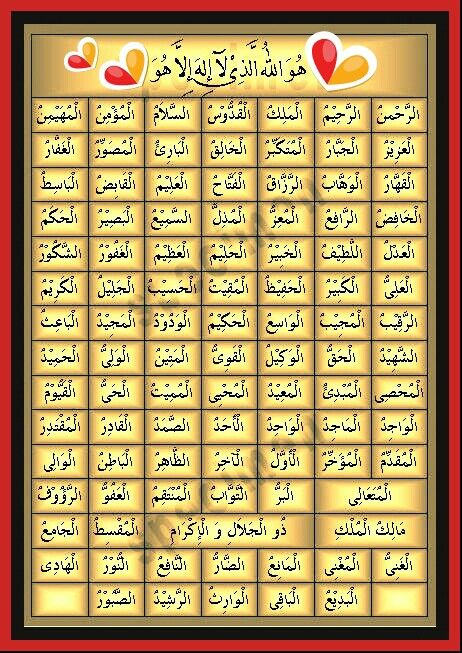 هُوَ اللهُ الَّذِيْ لَآ اِلٰهَ اِلَّا هُوَ
الْرَّحْمٰنُ الْرَّحِيْمُ الْمَلِكُ الْقُدُّوْسُ الْسَّلَامُ الْمُؤْمِنُ الْمُهَيْمِنُ
الْعَزِيْزُ الْجَبَّارُ الْمُتَكَبِّرُ الْخَالِقُ الْبَارِئُ الْمُصَوِّرُ الْغَفَّارُ
الْقَهَّارُ الْوَهَّابُ الْرَّزَّاقُ الْفَتَّاحُ الْعَلِيْمُ الْقَابِضُ الْبَاسِطُ
الْخَافِضُ الْرَّافِعُ الْمُعِزُّ الْمُذِلُّ الْسَّمِيْعُ الْبَصِيْرُ الْحَكَمُ
الْعَدْلُ الْلَّطِيْفُ الْخَبِيْرُ الْحَلِيْمُ الْعَظِيْمُ الْغَفُوْرُ الْشَّكُوْرُ
الْعَلِىُّ الْكَبِيْرُ الْحَفِيْظُ الْمُقِيْتُ الْحَسِيْبُ الْجَلِيْلُ الْكَرِيْمُ
الْرَّقِيْبُ الْمُجِيْبُ الْوَاسِعُ الْحَكِيْمُ الْوَدُوْدُ الْمَجِيْدُ الْبَاعِثُ
الْشَّهِيْدُ الْحَقُّ الْوَكِيْلُ الْقَوِىُّ الْمَتِيْنُ الْوَلِىُّ الْحَمِيْدُ
الْمُحْصِى الْمُبْدِئُ الْمُعِيْدُ الْمُحْيِى الْمُمِيْتُ الْحَىُّ الْقَيُّوْمُ
الْوَاجِدُ الْمَاجِدُ الْوَاحِدُ الْأَحَدُ الْصَّمَدُ الْقَادِرُ الْمُقْتَدِرُ
الْمُقَدِّمُ الْمُؤَخِّرُ الْأَوَّلُ الْآخِرُ الْظَّاهِرُ الْبَاطِنُ الْوَالِى
الْمُتَعَالِى الْبَرُّ الْتَّوَّابُ الْمُنْتَقِمُ الْعَفُوُّ الْرَّؤُوْفُ
مَالِكُ الْمُلْكِ ذُو الْجَلَالِ وَ الْإِكْرَامِ الْمُقْسِطُ الْجَامِعُ
الْغَنِىُّ الْمُغْنِى الْمَانِعُ الْضَّارُّ الْنَّافِعُ الْنُّوْرُ الْهَادِى
الْبَدِيْعُ الْبَاقِى الْوَارِثُ الْرَّشِيْدُ الْصَّبُوْرُ